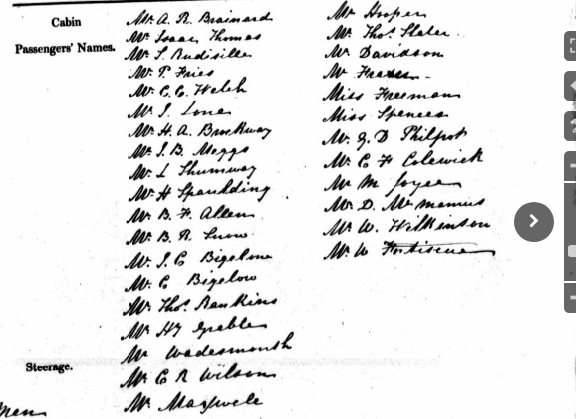 Cabin
Passengers' Names.
Mr A. R. Brainard
Mr Isaac Thomas
Mr S. Rudisille
Mr T. Fries
Mr C. C. Welch
Mr J.
Mr H. A. Brockway
Mr J. B. Meggs
Mr L Shumway
Mr H Spaulding
Mr B. F. Allen
Mr B. R. Snow
Mr J. C Bigelow
Mr C Bigelow
Mr Thos Rankins
Mr Hy Greble
Mr Wadesmouth
Steerage.
Mr C R Wilson
Mr Maxwell
men
Mr Hooper
Mr Thos Slater
Mr Davidson
Mr Frazer
Miss Freeman
Miss Spencer
Mr G. D Philpot
Mr C F Colewick
Mr M Joyce
Mr D. McManus
Mr W. Wilkinson
Mr W Fortiscue